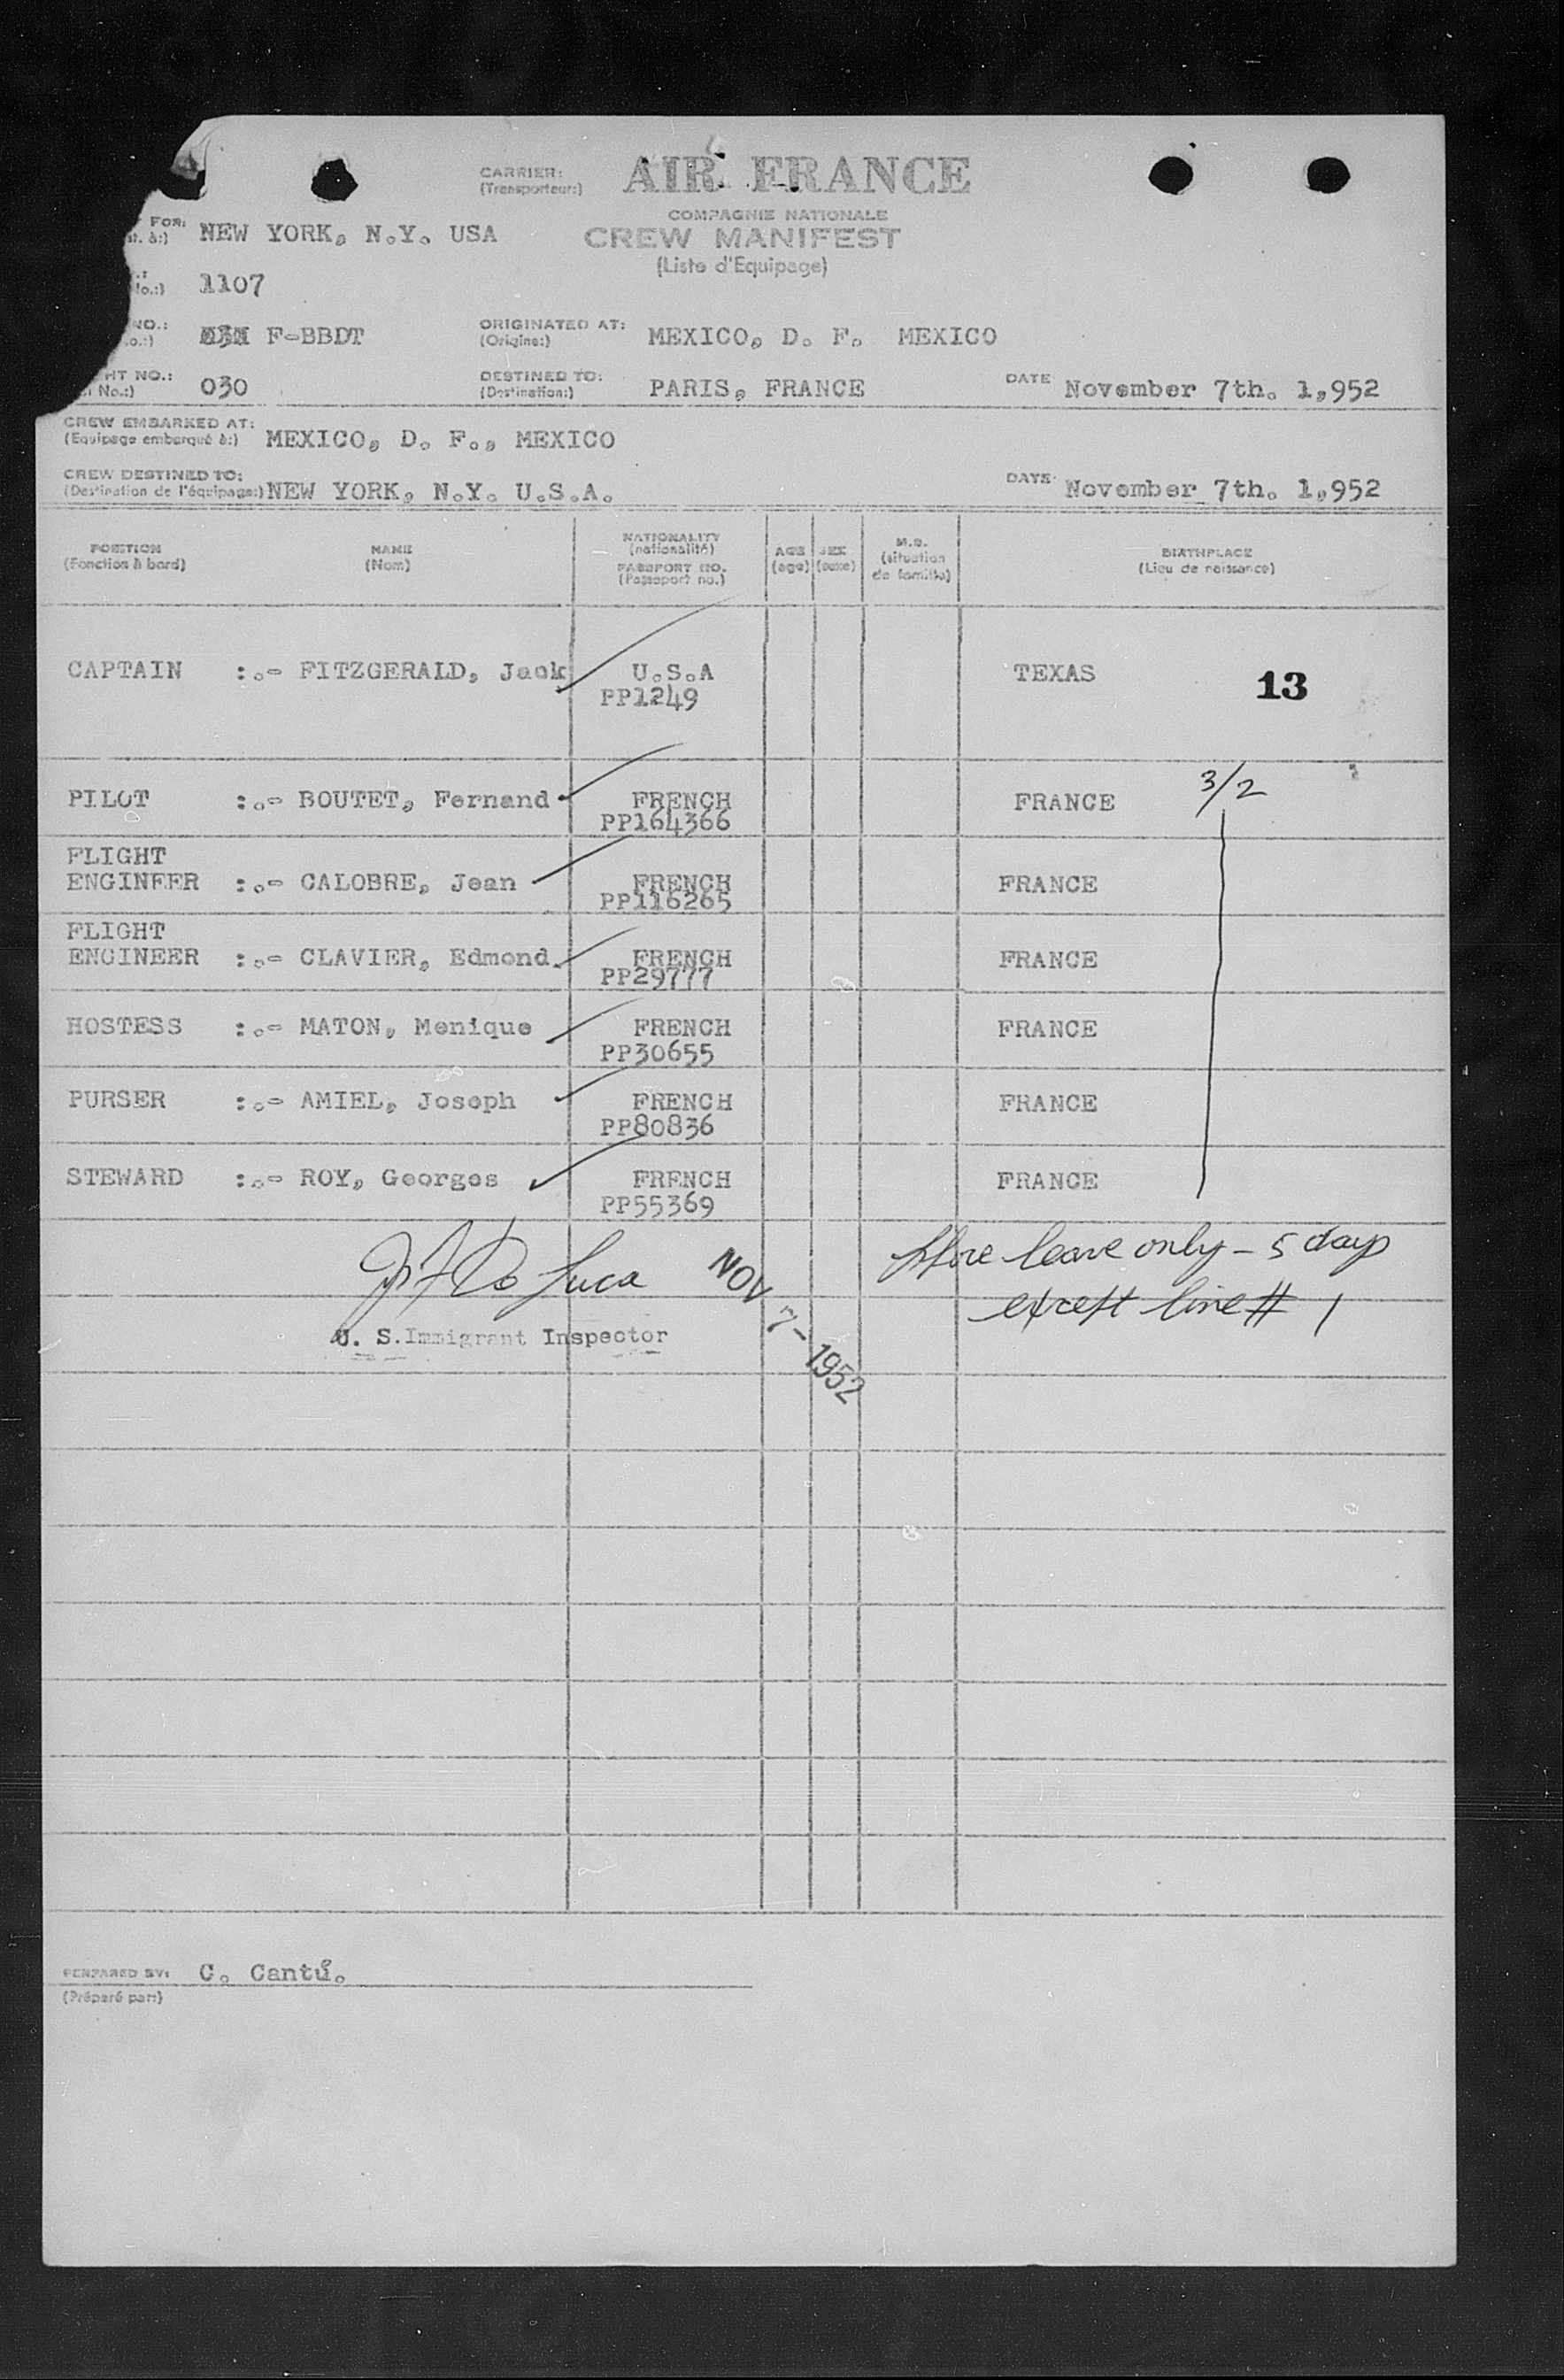 CARRIER: AIR FRANCE
(Transporteur:)
COMPAGNIE NATIONALE
FOR: NEW YORK, N.Y. USA CREW MANIFEST
à:)
(Liste d'Equipage)
No.:) 1107
NO.: F-BBDT ORIGINATED AT: MEXICO, D. F. MEXICO
o.:) (Origine:)
HT NO.: 030 DESTINED TO: PARIS, FRANCE DATE November 7th. 1,952
No.:) (Destination:)
CREW EMBARKED AT: MEXICO, D. F., MEXICO
(Equipage embarqué à:)
CREW DESTINED TO: NEW YORK, N.Y. U.S.A. DATE November 7th. 1,952
(Destination de l'équipage:)
POSITION NAME NATIONALITY AGE SEX M.S. BIRTHPLACE
(Fonction à bord) (Nom) (nationalité) (age) (sexe) (situation de famille) (Lieu de naissance)
PASSPORT NO.
(Passeport no.)
CAPTAIN :.- FITZGERALD, Jack U.S.A TEXAS 13
PP1249
PILOT :.- BOUTET, Fernand FRENCH FRANCE 3/2
PP164366
FLIGHT
ENGINEER :.- CALOBRE, Jean FRENCH FRANCE
PP116265
FLIGHT
ENGINEER :.- CLAVIER, Edmond. FRENCH FRANCE
PP29777
HOSTESS :.- MATON, Menique FRENCH FRANCE
PP30655
PURSER :.- AMIEL, Joseph FRENCH FRANCE
PP80836
STEWARD :.- ROY, Georges FRENCH FRANCE
PP55369
De Luca NOV 7-1952 Shore leave only - 5 days
except line # 1
U. S. Immigrant Inspector
PREPARED BY: C. Cantú.
(Préparé par:)